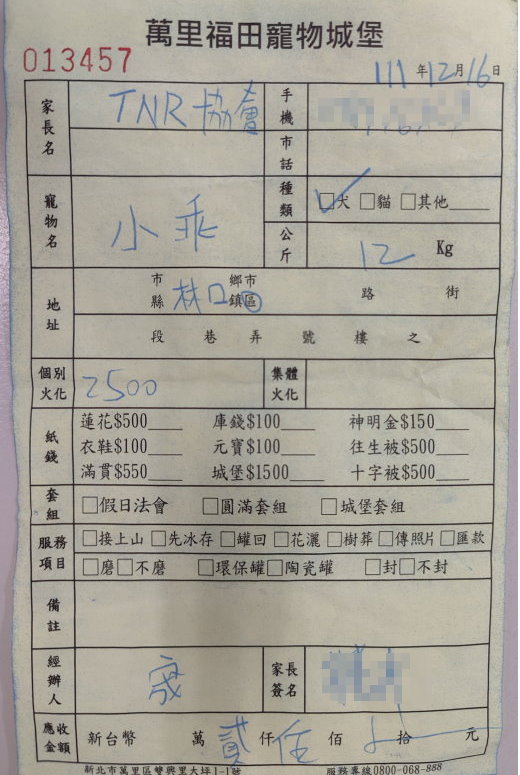 萬里福田寵物城堡
013457
111年12月16日
家長名 TNR 協會 手機
市話
寵物名 小乖 種類 ☑犬 □貓 □其他
公斤 12 Kg
地址 市縣 林口 鄉市鎮區 路 街
段 巷 弄 號 樓 之
個別火化 2500 集體火化
紙錢 蓮花$500 庫錢$100 神明金$150
衣鞋$100 元寶$100 往生被$500
滿貫$550 城堡$1500 十字被$500
套組 □假日法會 □圓滿套組 □城堡套組
服務項目 □接上山 □先冰存 □罐回 □花灑 □樹葬 □傳照片 □匯款
□磨 □不磨 □環保罐 □陶瓷罐 □封 □不封
備註
經辦人 家長簽名
應收金額 新台幣 萬 貳 仟 伍 佰 拾 元
新北市萬里區雙興里大坪1-1號 服務專線0800-068-888